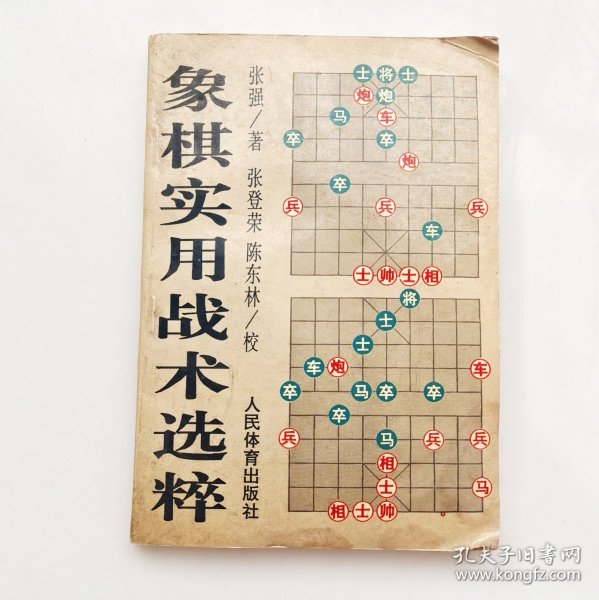 象棋实用战术选粹
张强/著 张登荣 陈东林/校
人民体育出版社
士 将 士
炮 炮
马 车
卒 卒
炮
卒
兵 兵 兵
车
士 帅 士 相
将
士
士
车 炮 车
卒 马 卒 卒
卒
兵 马 兵 兵
相
士 马
相 士 帅
孔夫子旧书网
www.kongfz.com